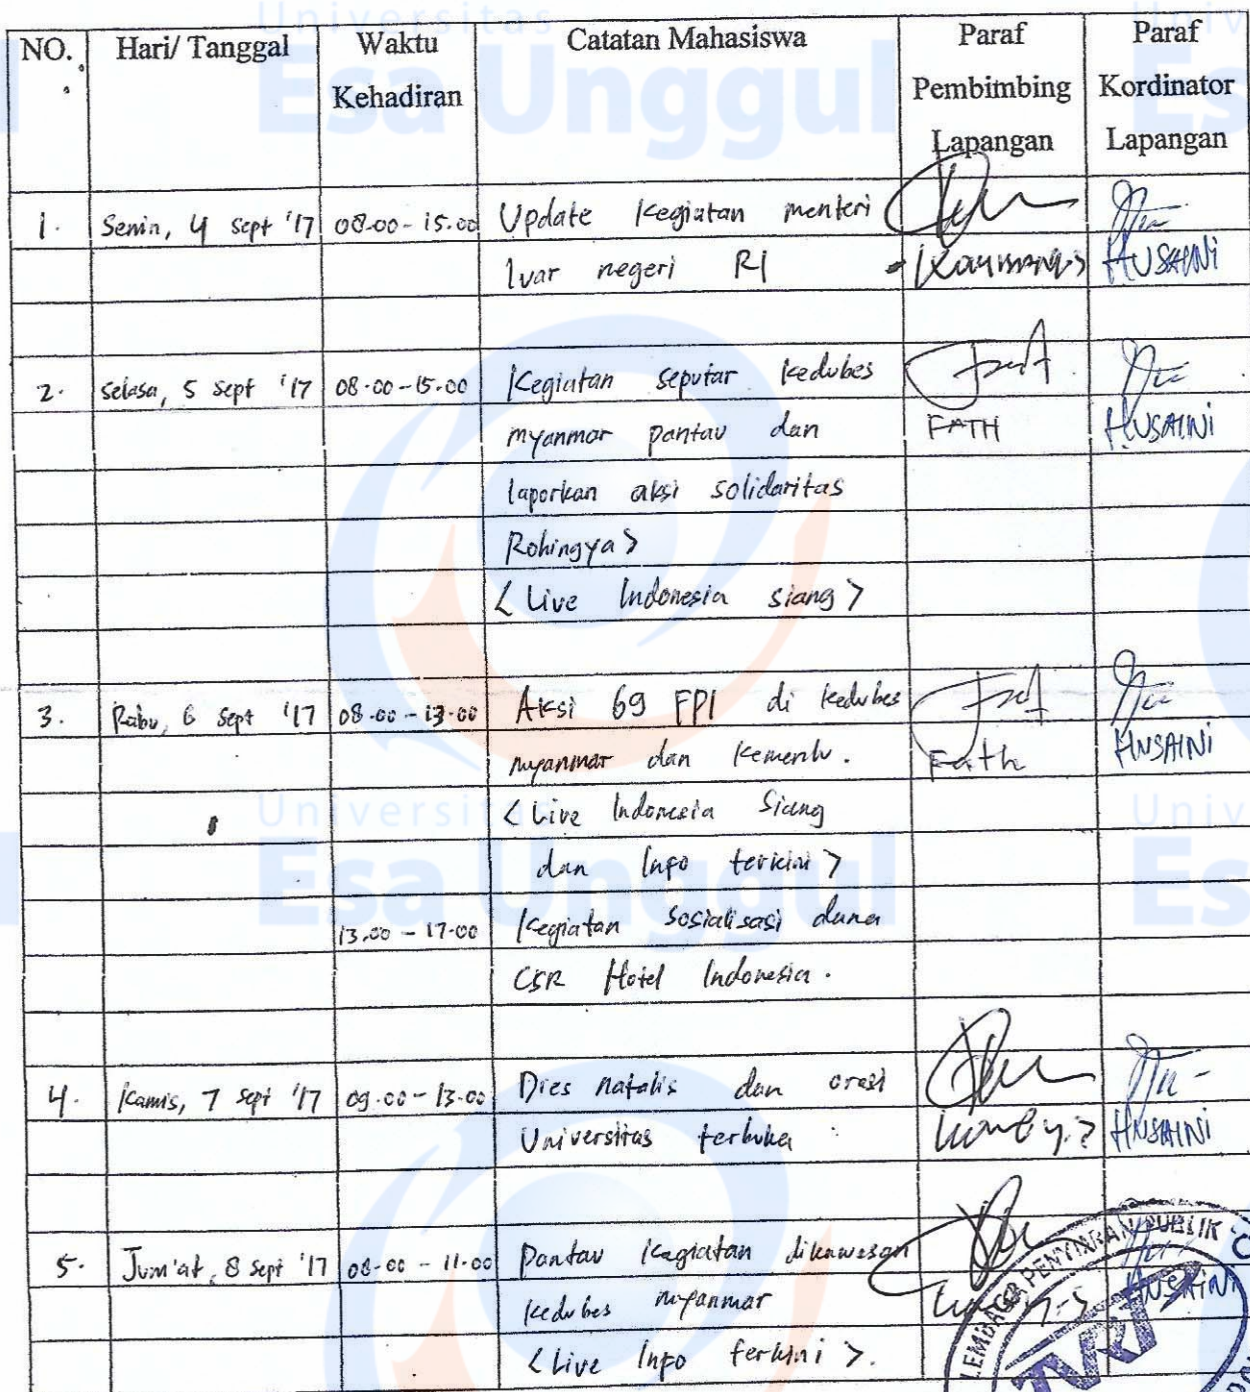 Universitas
Esa Unggul
NO. Hari/ Tanggal Waktu Kehadiran Catatan Mahasiswa Paraf Pembimbing Lapangan Paraf Kordinator Lapangan
1. Senin, 4 sept '17 08.00 - 15.00 Update Kegiatan menteri
luar negeri RI HUSAINI
2. Selasa, 5 sept '17 08.00 - 15.00 Kegiatan seputar kedubes
myanmar pantau dan FATH HUSAINI
laporkan aksi solidaritas
Rohingya >
< Live Indonesia siang >
3. Rabu, 6 sept '17 08.00 - 13.00 Aksi 69 FPI di kedubes
myanmar dan Kemenlu. Fath HUSAINI
Universitas
< Live Indonesia Siang
dan Info terkini >
Esa Unggul
13.00 - 17.00 Kegiatan Sosialisasi dana
CSR Hotel Indonesia.
4. Kamis, 7 sept '17 09.00 - 13.00 Dies natalis dan orasi
Universitas terbuka HUSAINI
5. Jum'at, 8 sept '17 08.00 - 11.00 Pantau Kegiatan dikawasan
kedubes myanmar HUSAINI
< Live Info terkini >.
LEMBAGA PENYIARAN PUBLIK
TVRI